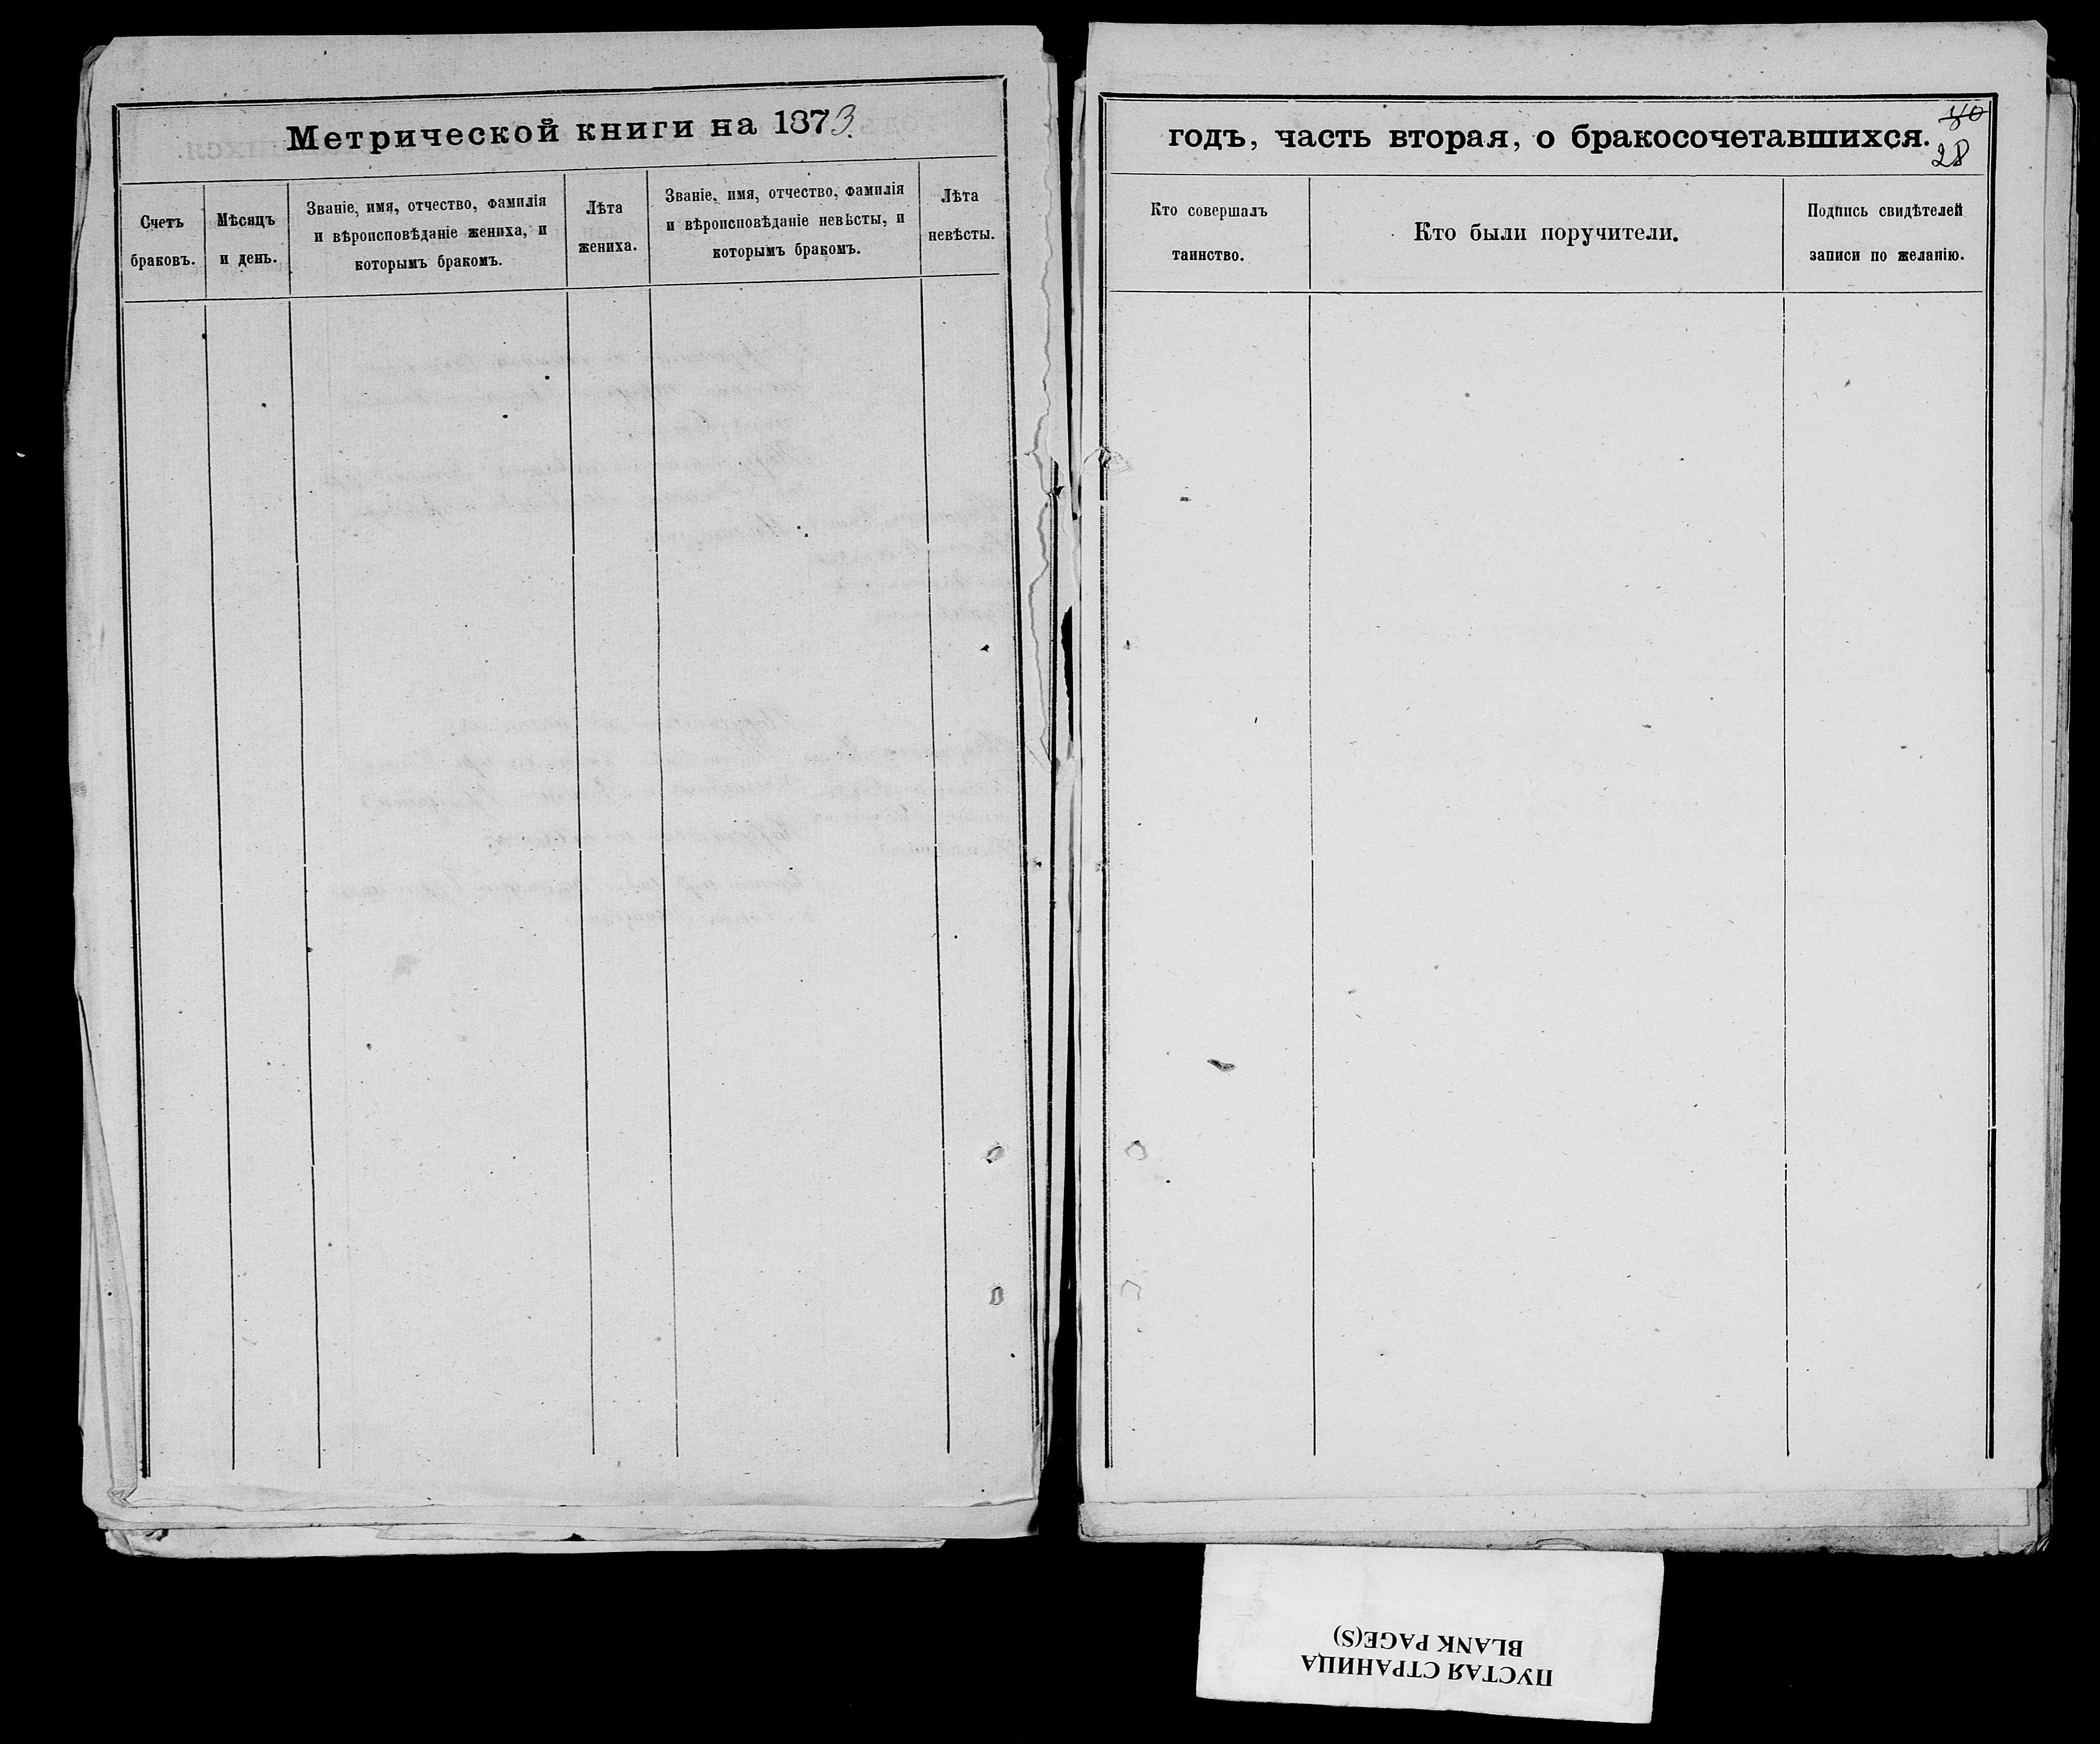 Метрической книги на 1873.
Счетъ
браковъ.
Мѣсяцъ
и день.
Званіе, имя, отчество, фамилія
и вѣроисповѣданіе жениха, и
которымъ бракомъ.
Лѣта
жениха.
Званіе, имя, отчество, фамилія
и вѣроисповѣданіе невѣсты, и
которымъ бракомъ.
Лѣта
невѣсты.
годъ, часть вторая, о бракосочетавшихся.
28
Кто совершалъ
таинство.
Кто были поручители.
Подпись свидѣтелей
записи по желанію.
ПУСТАЯ СТРАНИЦА
BLANK PAGE(S)